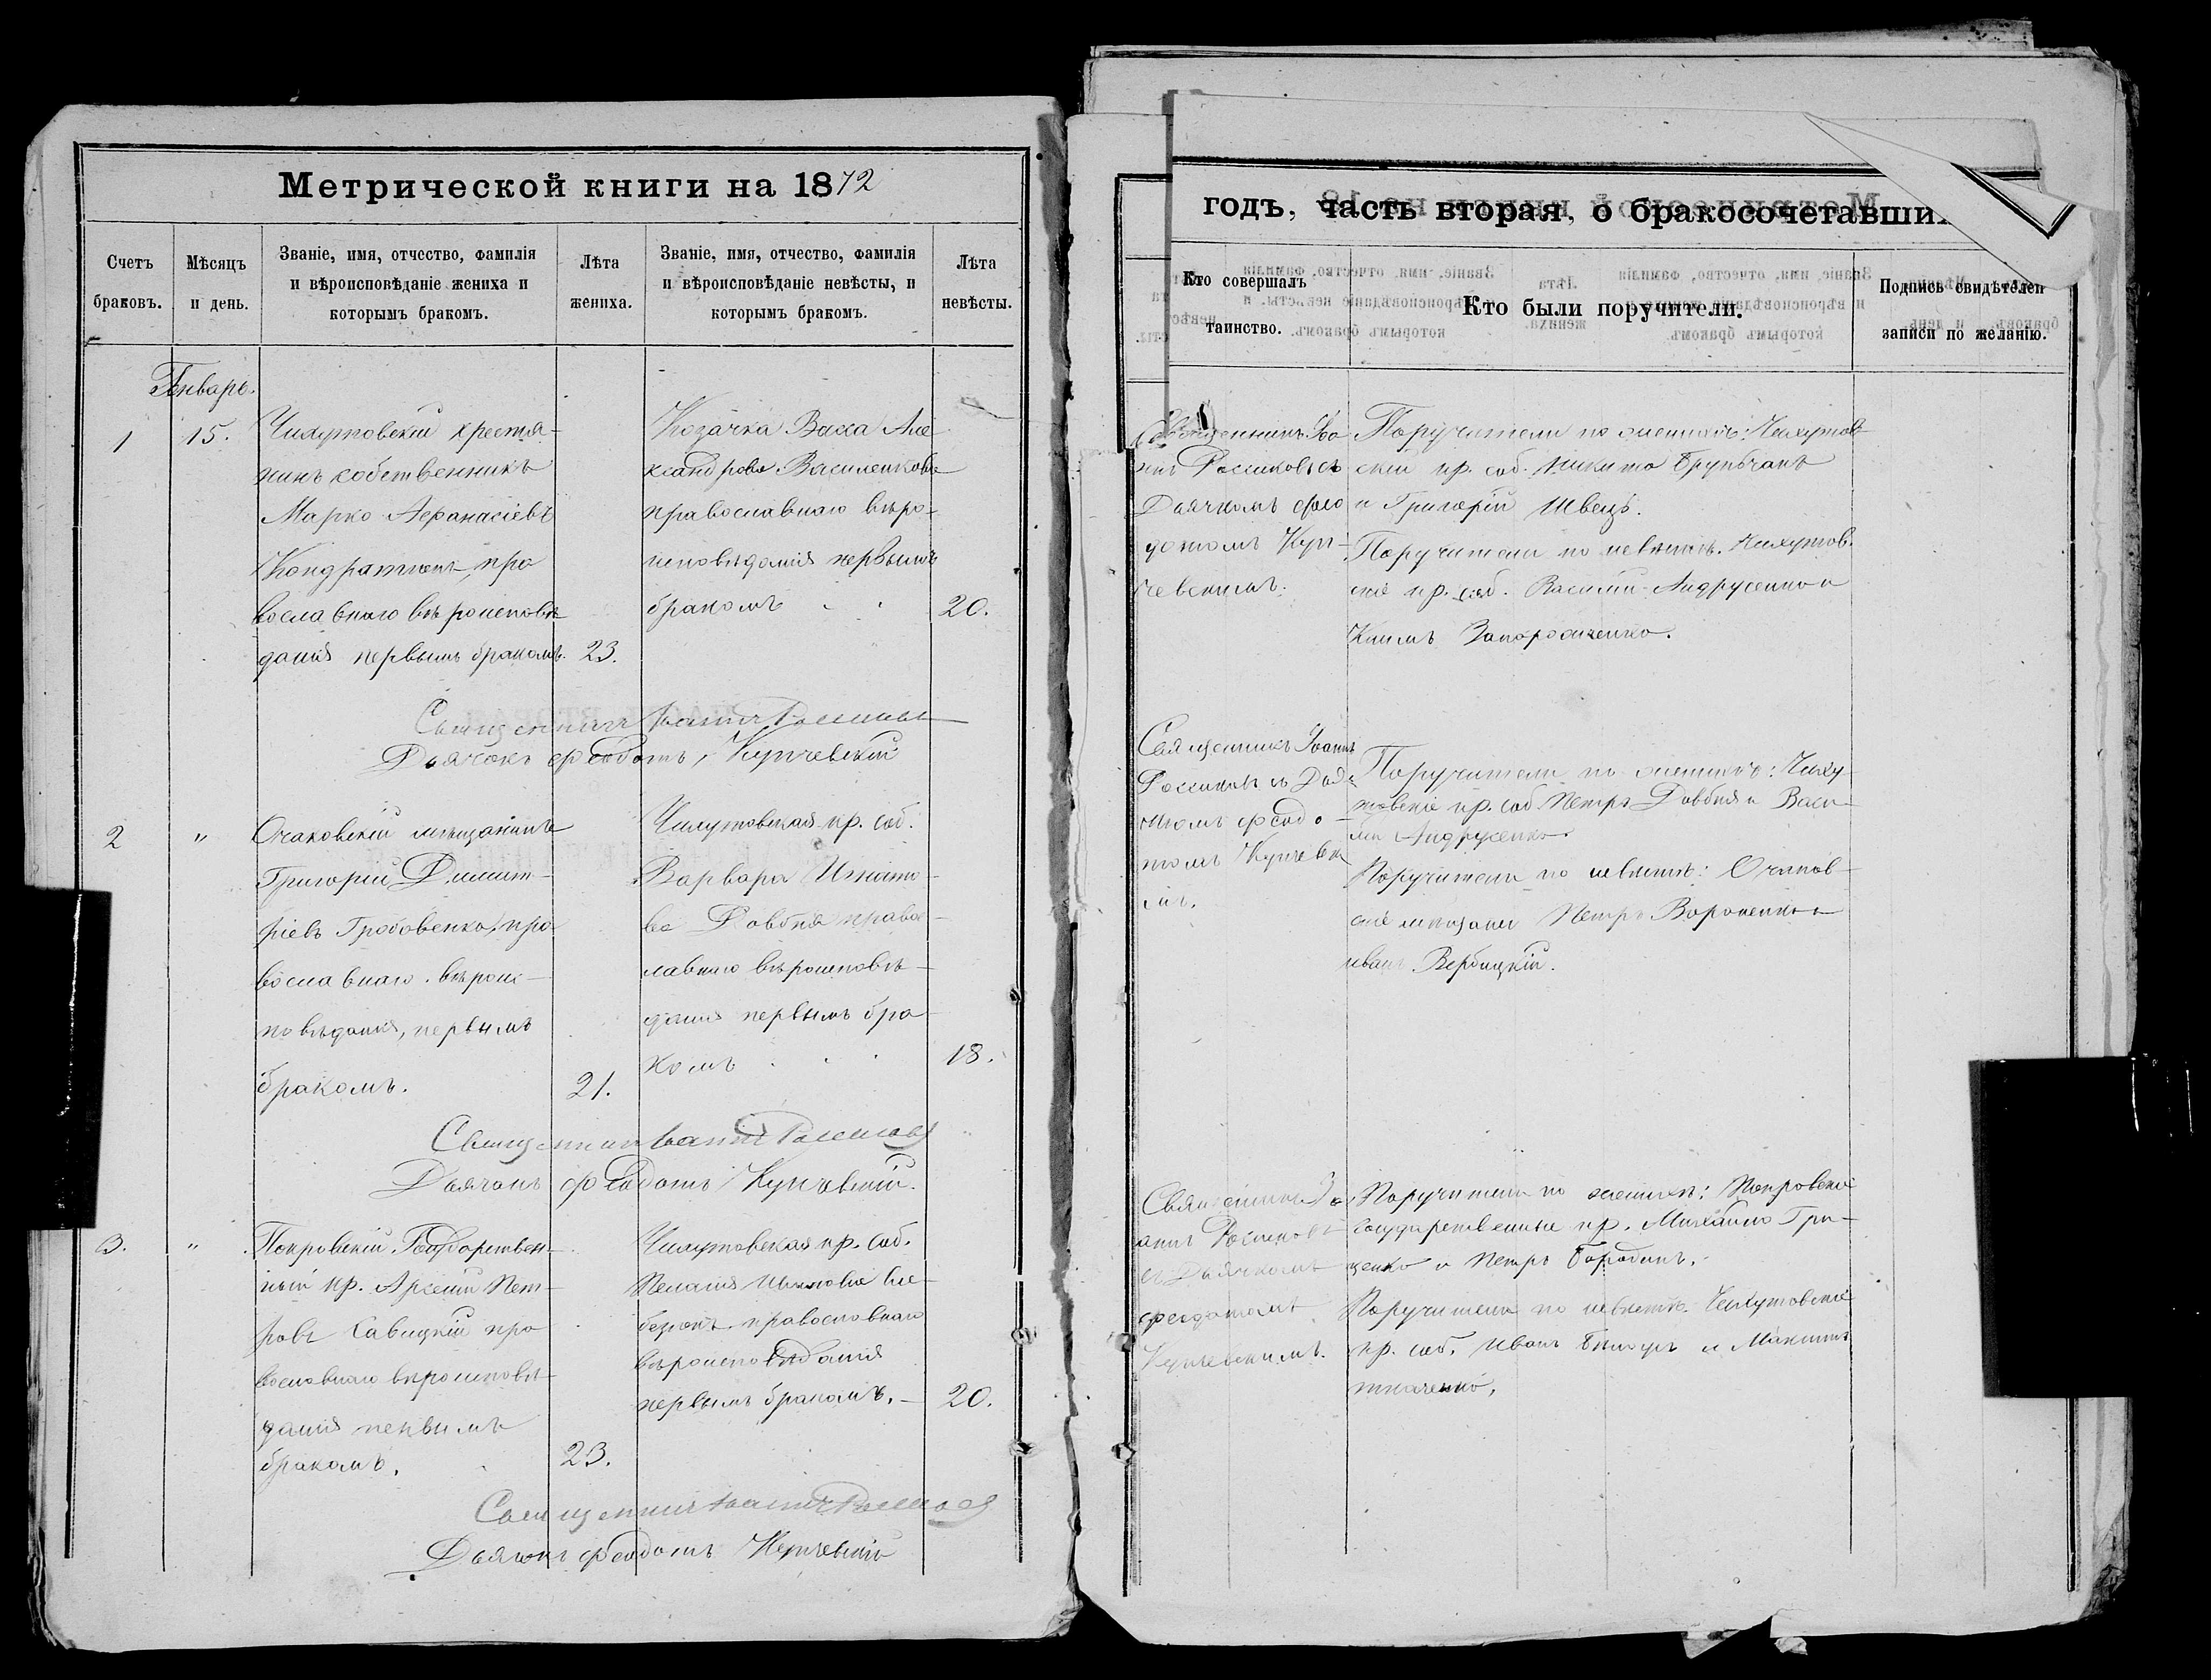 Метрической книги на 1872
Счетъ браковъ.
Мѣсяцъ и день.
Званіе, имя, отчество, фамилія
и вѣроисповѣданіе жениха и
которымъ бракомъ.
Лѣта жениха.
Званіе, имя, отчество, фамилія
и вѣроисповѣданіе невѣсты, и
которымъ бракомъ.
Лѣта невѣсты.
Январь.
1
15.
крестья-
нинъ собственникъ
Марко Аѳанасіевъ
пра
вославнаго вѣроисповѣ
данія первымъ бракомъ. 23.
Козачка Васса Але
ксандрова Василенкова
православнаго вѣро-
исповѣданія первымъ
бракомъ 20.
Священникъ Іоаннъ
Дьячокъ Ѳеодотъ Купчевскій
2
"
Очаковскій мѣщанинъ
Григорій Димит-
ріевъ пра
вославнаго вѣроис-
повѣданія, первымъ
бракомъ. 21.
кр. соб.
Варвара Игнато-
ва Довбня правос-
лавнаго вѣроисповѣ-
данія первымъ бра-
комъ 18.
Священникъ Іоаннъ
Дьячокъ Ѳеодотъ Купчевскій.
3.
"
Покровскій Государствен-
ный кр. Арсеній Пет-
ровъ Савицкій пра
вославнаго вѣроисповѣ-
данія первымъ
бракомъ. 23.
кр. соб.
Пелагія
православнаго
вѣроисповѣданія
первымъ бракомъ. — 20.
Священникъ Іоаннъ
Дьячокъ Ѳеодотъ Купчевскій
годъ, часть вторая, о бракосочетавших
Кто совершалъ
таинство.
Кто были поручители.
Подпись свидѣтелей
записи по желанію.
Священникъ Іоа
ннъ съ
Дьячкомъ Ѳео
дотомъ Куп-
чевскимъ.
Поручители по женихѣ:
кр. соб. Никита
и Григорій Швецъ.
Поручители по невѣстѣ.
кр. соб. Василій Андрусенко и
Климъ Запорожченко.
Священникъ Іоаннъ
съ Дья
чкомъ Ѳеодо-
томъ Купчевск
имъ.
Поручители по женихѣ:
кр. соб. Петръ Довбня и Васи-
лій Андрусенко.
Поручители по невѣстѣ: Очаков-
скіе мѣщане Петръ Вороненко и
Иванъ Вербицкій.
Священникъ Іо
аннъ
съ Дьячкомъ
Ѳеодотомъ
Купчевскимъ.
Поручители по женихѣ: Покровскіе
государственные кр. Михайло Гри-
ценко и Петръ Бородинъ.
Поручители по невѣстѣ.
кр. соб. Иванъ и Максимъ
Ткаченко.